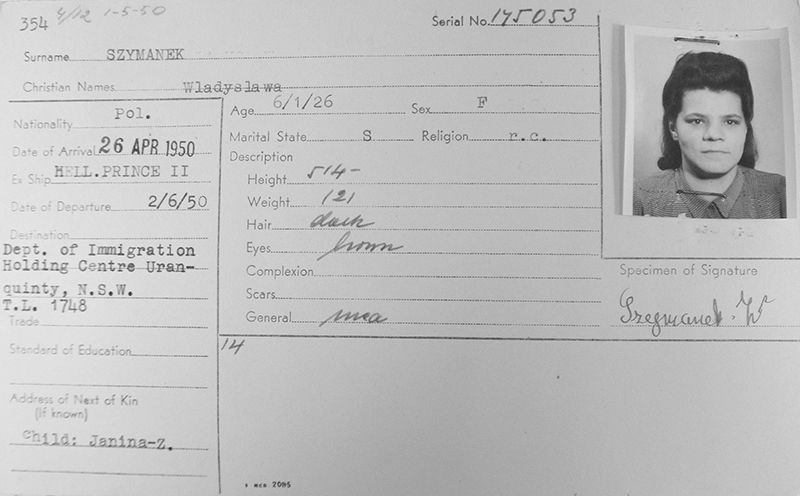 354 4/12 1-5-50
Serial No. 175053
Surname SZYMANEK
Christian Names Wladyslawa
Nationality Pol.
Date of Arrival 26 APR 1950
Ex Ship HELL.PRINCE II
Date of Departure 2/6/50
Destination
Dept. of Immigration
Holding Centre Uran-
quinty, N.S.W.
T.L. 1748
Trade
Standard of Education
Address of Next of Kin
(If known)
Child: Janina-Z.
Age 6/1/26 Sex F
Marital State S Religion r.c.
Description
Height 5'4-
Weight 121
Hair dark
Eyes brown
Complexion
Scars
General
14
Specimen of Signature
Szymanek W